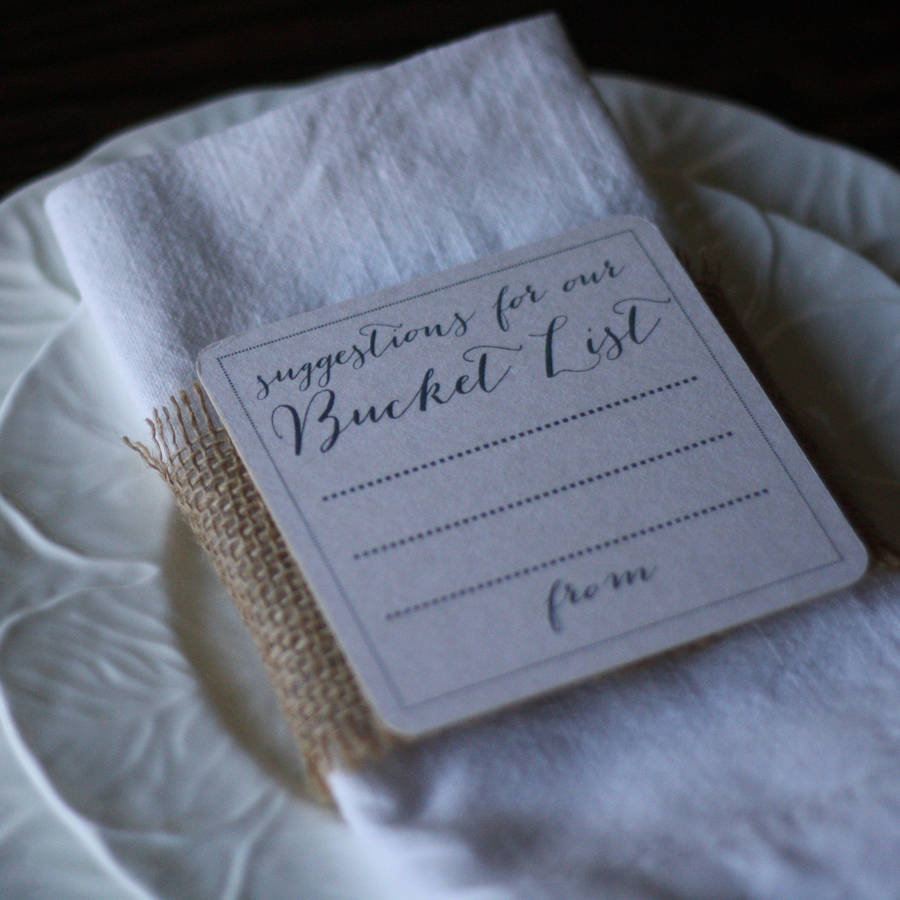 suggestions for our
Bucket List
from